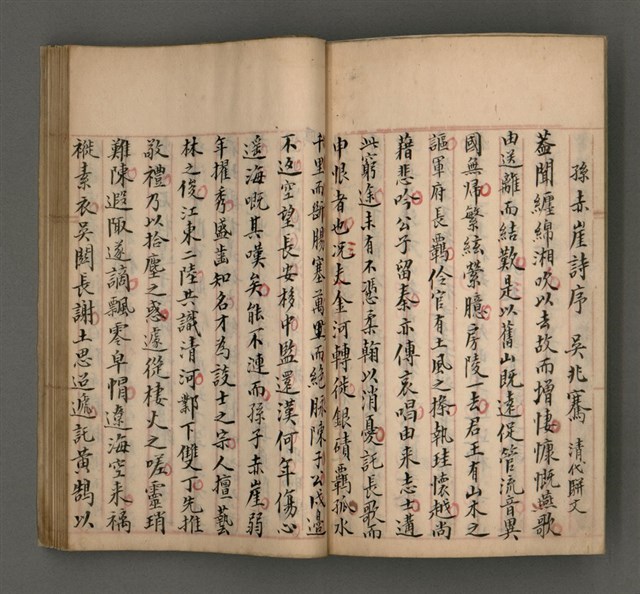 孫赤崖詩序 吳兆騫 清代駢文
蓋聞纏綿湘吹以去故而增悽慷慨燕歌
由送離而結歎是以舊山既遠促管流音異
國無歸繁絃縈臆房陵一去君王有山木之
謳軍府長羈伶官有土風之操執珪懷越尚
藉悲吟公子留秦亦傳哀唱由来志士遘
此窮途未有不憑柔翰以消憂託長歌而
申恨者也況夫金河轉徙銀磧羈孤水
千里而斷腸塞萬里而絕脉陳子公戍邊
不返空望長安移中監還漢何年傷心
遥海嘅其嘆矣能不連而孫子赤崖弱
年擢秀盛齒知名才為該士之宗人擅藝
林之俊江東二陸共識清河鄴下雙丁先推
敬禮乃以拾塵之惑遽從棲火之嗟靈瑣
難陳遐陬遂謫飄零皁帽遼海空来襦
褷素衣吳關長謝土思迢遞託黃鵠以